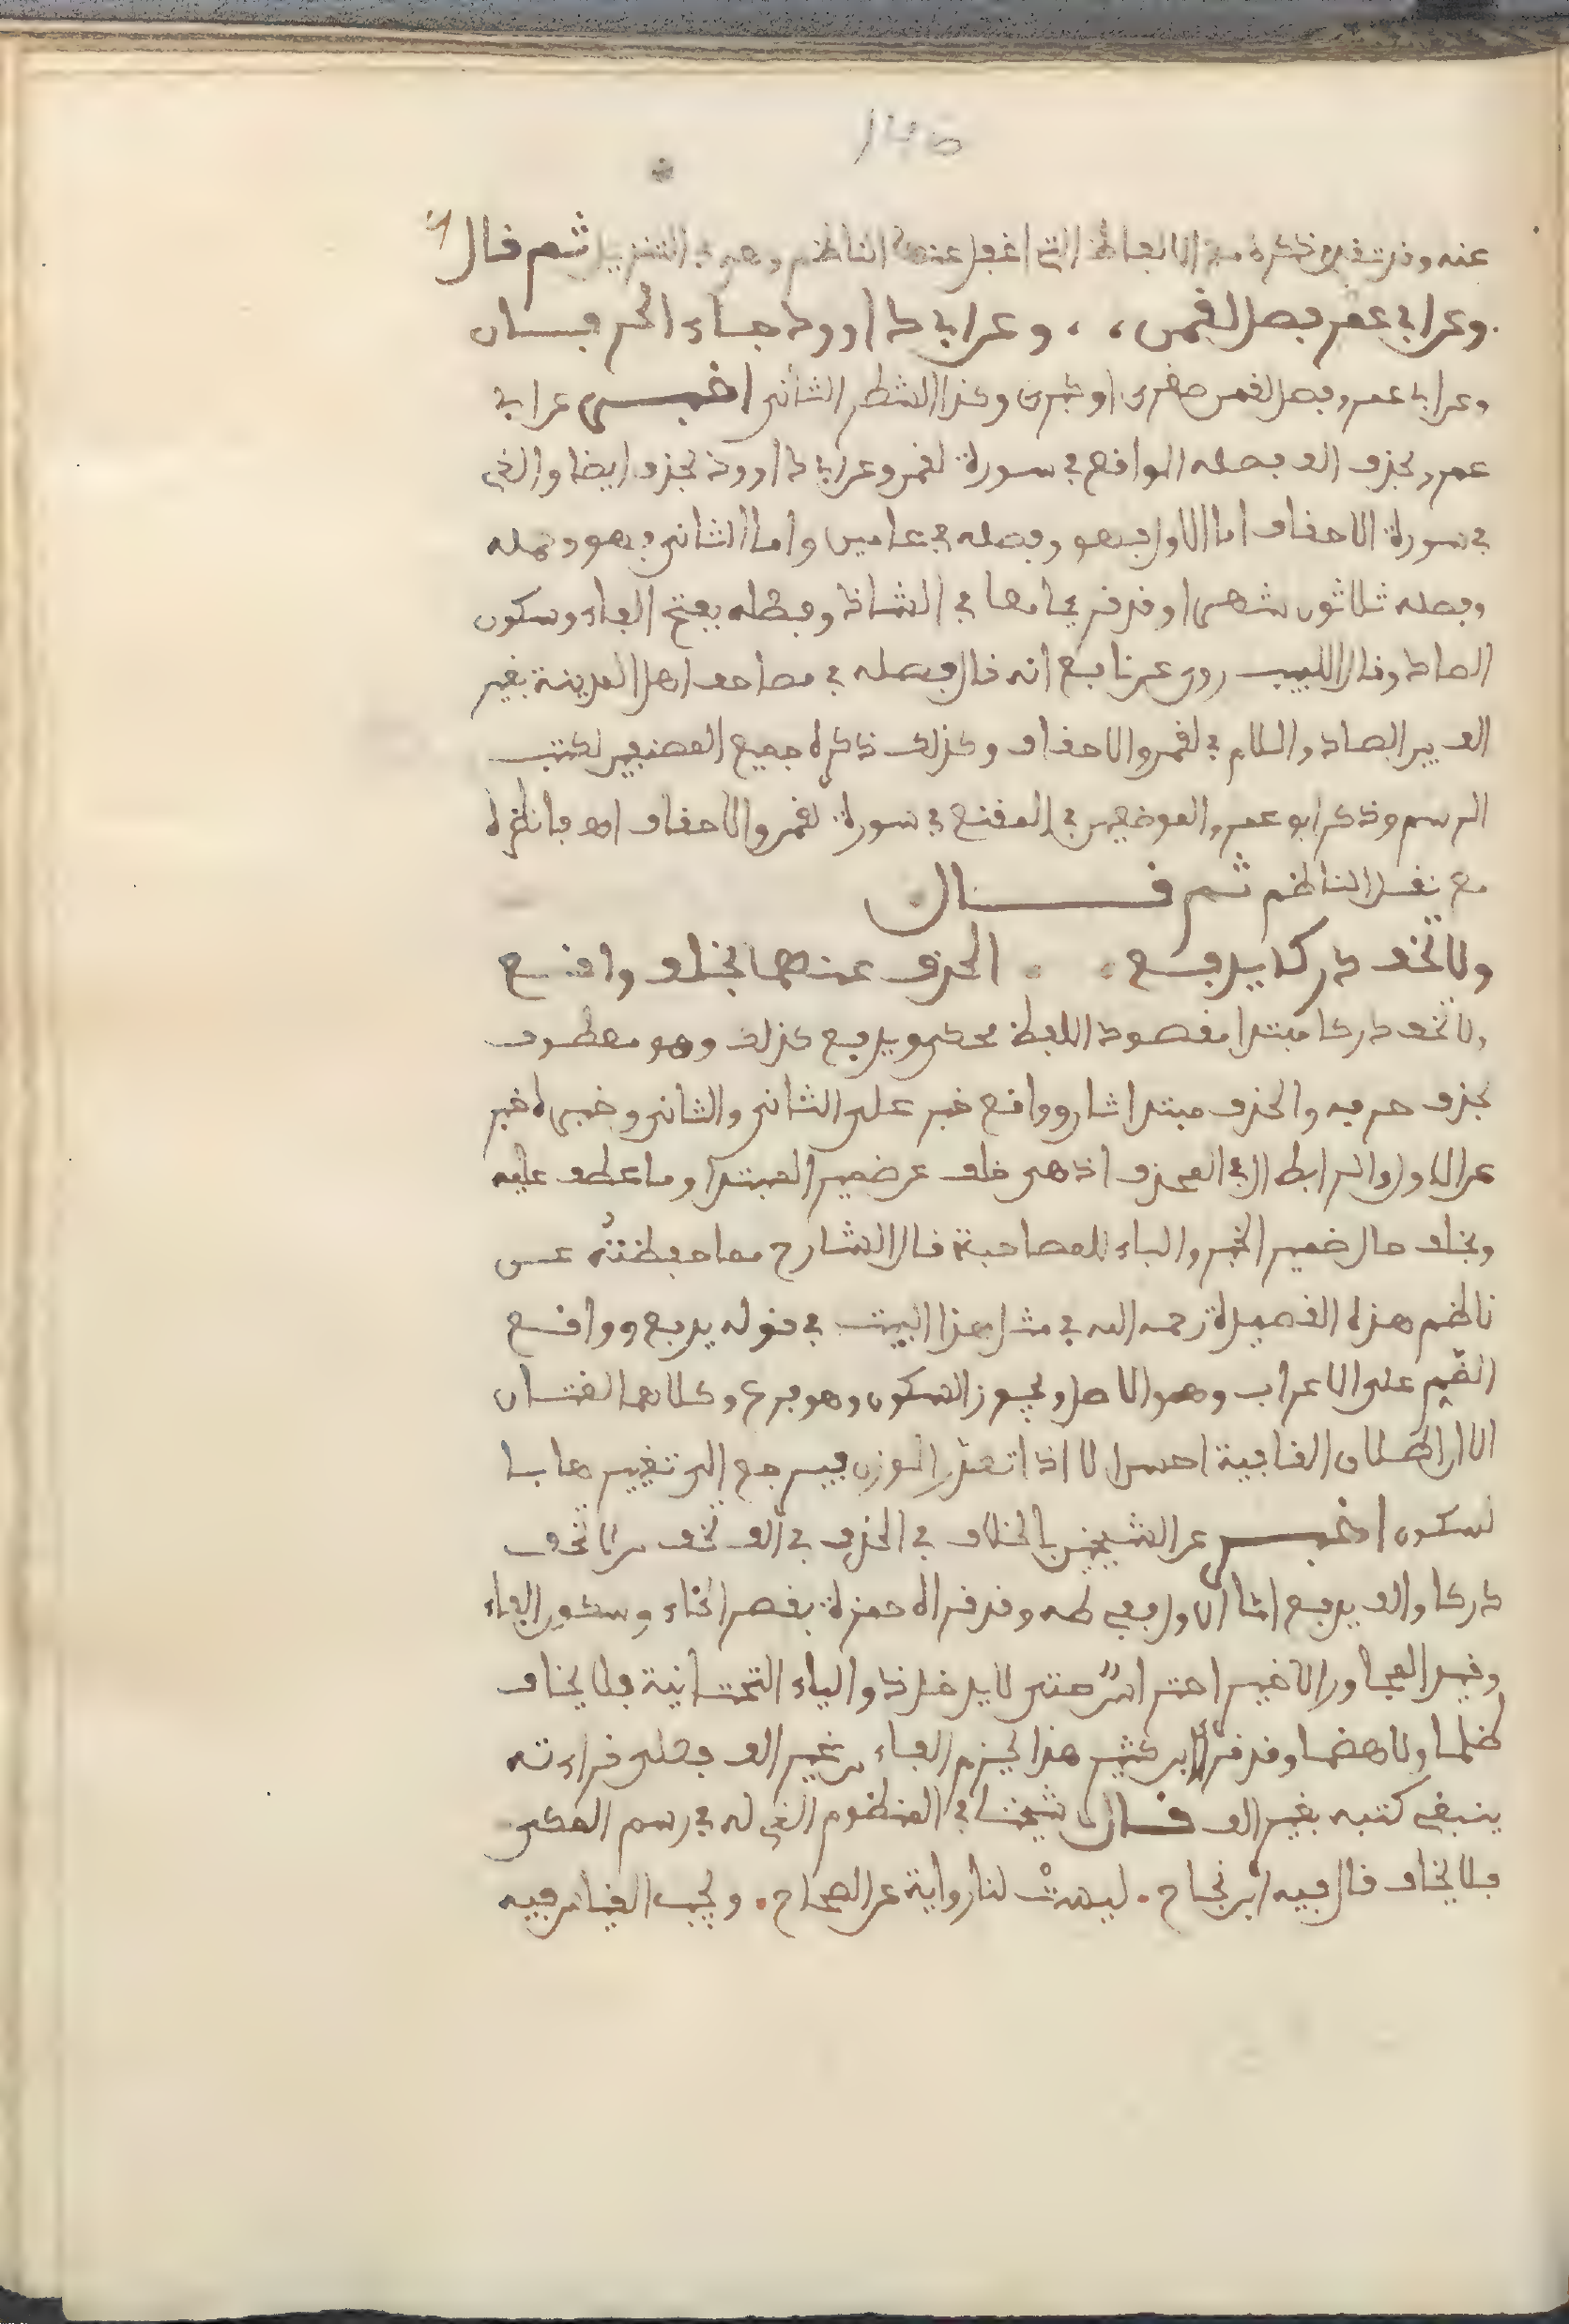 ١٢٥
عنه وقد تقدم ذكره مع الالفاظ التي اغفل عنها الناظم وهي في التنزيل ثم قال
وعن ابي عمرو فصل لقمن ، ، وعن ابي داوود جاء الحرفان
وعن ابي عمرو فصل لقمن صغرى او كبرى وكذا الشطر الثاني اخبر عن ابي
عمرو بحذف الف فصله الواقع في سورة لقمن وعن ابي داوود بحذفه ايضا والذي
في سورة الاحقاف اما الاول فهو وفصله في عامين واما الثاني فهو وحمله
وفصله ثلاثون شهرا وقد قرئ معا في الشاذ وفصله بفتح الفاء وسكون
الصاد وقال اللبيب روى عن نافع انه قال فصله في مصاحف اهل المدينة بغير
الف بين الصاد واللام في لقمن والاحقاف وكذلك ذكره جميع المصنفين لكتب
الرسم وذكر ابو عمرو الموضعين في المقنع في سورة لقمن والاحقاف اهـ فانظره
مع نقل الناظم ثم قال
ولا تخف دركا يدفع . . الحذف عنهما بخلف واقع
ولا تخف دركا مبتدا مقصود اللفظ محكي ويدفع كذلك وهو معطوف
بحذف حرفه والحذف مبتدا ثان وواقع خبر على الثاني والثاني وخبره خبر
عن الاول والرابط ال في الحذف اذ هي خلف عن ضمير المبتدا وما عطف عليه
وبخلف حال ضمير الخبر والباء للمصاحبة قال الشارح مما حفظته عن
ناظم هذه القصيدة رحمه الله في مثل هذا البيت في قوله يدفع وواقع
الضم على الاعراب وهو الاصل ويجوز السكون وهو فرع وكلاهما لغتان
الا ان اطلاق القافية احسن الا اذا تعذر الوزن فيرجع الى تغييرها با
لسكون اخبر عن الشيخين بالخلاف في الحذف في الف تخف من لا تخف
دركا والف يدفع اما الاول ففي طه وقد قراه حمزة بقصر الخاء وسكون الفاء
وقيد المجاور الاخير احترازا حتى لا يدخل ذو الياء التحتانية فلا يخاف
ظلما ولا هضما وقد قرا ابن كثير هذا بجزم الفاء من غير الف فعلى قراءته
ينبغي كتبه بغير الف قال شيخنا في المنظوم الذي له في رسم المكي
فلا يخاف قال فيه ابن نجاح . ليست لنا رواية عن الصحاح . ويجب القياس فيه